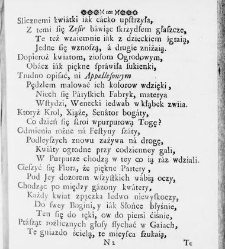 Slicznemi kwiatki iak cacko upstrzyła,
Z temi się Zefir bawiąc skrzydłem głaszcze,
Te też wzaiemnie iak z dzieckiem igraią,
Jedne się wznoszą, a drugie zniżaią.
Dopieroż kwiatom, ziołom Ogrodowym,
Obacz iak piękne sprawiła sukienki,
Trudno opisać, ni Appellesowym
Pędzlem malować ich kolorow wdzięki,
Niech się Páryskich Fabryk, materya
Wstydzi, Wenecki iedwab w kłąbek zwiia.
Ktoryż Krol, Xiążę, Senátor bogáty,
Co dzień się stroi wpurpurową Togę?
Odmienia rożne ná Festyny száty,
Podleyszych znowu zażywa ná drogę,
Kwiáty ogrodne przy codzienney gali,
W Purpurze chodzą w tey co ią ráz wdziali.
Cieszyć się Flora, że piękne Partery,
Pod Jey dozorem wszystkich wábią oczy,
Chodząc po między gázony kwátery,
Każdy kwiat zpęczka ledwo niewyskoczy,
Do swey Bogini, y iak Słońce błyśnie,
Ten się do ręki, ow do piersi ciśnie,
Ptasząt rozlicznych głosy słychać w Gaiach,
Te gniazdo ścielą, te mieysca szukaią,
N2 Te